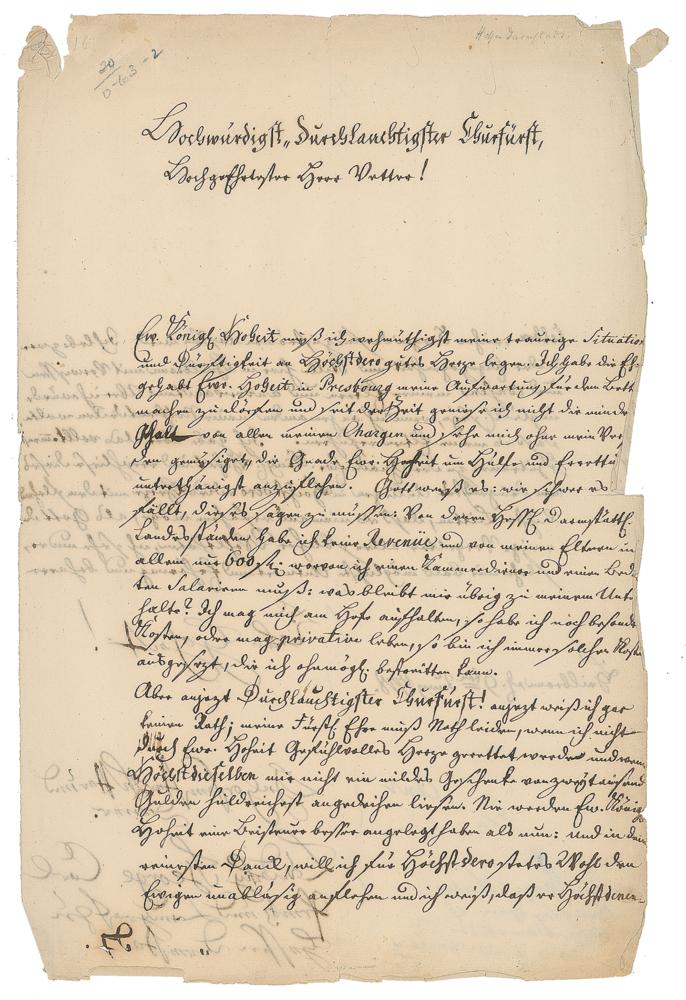 20
0-603-2
Hessen Darmstadt.
Hochwürdigst„ Durchlauchtigster Churfürst,
Hochgeehrtester Herr Vetter!
Ew. Königl. Hoheit muß ich wehmüthigst meine traurige Situation
und Dürftigkeit an Höchstdero gutes Herze legen. Ich habe die Eh-
gehabt Ewr. Hoheit in Presbourg meine Aufwartung für dem Bett
machen zu dörfen und seit der Zeit geniese ich nicht die minde
von allen meinen Chargen und sehe mich ohne mein Ver-
den gemüsiget, die Gnade Ewr. Hoheit um Hülfe und Errettu
unterthänigst anzuflehen. Gott weiß es: wie schwer es
fällt, dieses sagen zu müssen: Von denen Hessl. Darmstättl.
Landesständen habe ich keine Revenüe und von meinen Eltern in
allem nur 600 fl: worvon ich einen Kammerdiener und einen Bedi-
ten Salariren muß: was bleibt mir übrig zu meinem Unte
halte? Ich mag mich am Hofe aufhalten, so habe ich noch besonde
Kosten, oder mag privatim leben, so bin ich immer solchen Koste
ausgesezt, die ich ohnmögl. bestreitten kann.
Aber anjezt Durchlauchtigster Churfürst! anjezt weiß ich gar
keinen Rath; meine Fürstl. Ehre muß Noth leiden, wenn ich nicht
durch Ewr. Hoheit Gefühlvolles Herze gerettet werde und wenn
Höchstdieselben mir nicht ein mildes Geschenke von zweytausend
Gulden huldreichest angedeihen liesen. Nie werden Ew. König
Hoheit eine Beisteuer besser angelegt haben als nun: und in dem
reinesten Danck, will ich für Höchstdero stetes Wohl den
Ewigen unabläsig anflehen und ich weiß, daß er Höchstdenen-